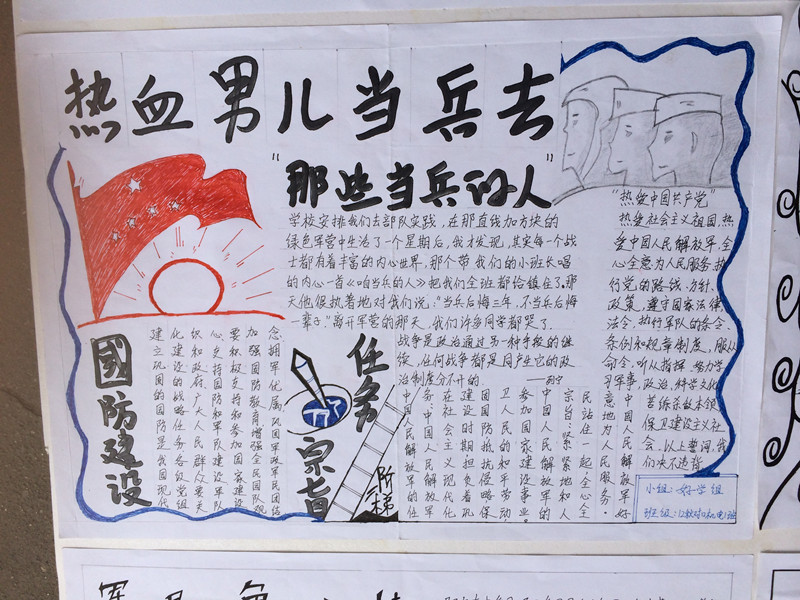 热血男儿当兵去
"那些当兵的人"
学校安排我们去部队实践，在那直线加方块的
绿色军营中生活了一个星期后，我才发现，其实每一个战
士都有着丰富的内心世界，那个带我们的小班长唱
的内心一首《咱当兵的人》把我们全班都给镇住了，那
天他很执着地对我们说："当兵后悔三年，不当兵后悔
一辈子."离开军营的那天，我们许多同学都哭了.
战争是政治通过另一种手段的继
续，任何战争都是同产生它的政
治制度分不开的.
"热爱中国共产党"
热爱社会主义祖国，热
爱中国人民解放军，全
心全意为人民服务.执
行党的路线、方针、
政策，遵守国家法律、
法令.执行军队的条令、
条例和规章制度，服从
命令，听从指挥.努力学
习军事、政治、科学文化
苦练杀敌本领
保卫建设社
会.以上誓词，我
们决不违背
國防建设
念.拥军优属,巩固军政军民团结
加强国防教育增强全民国防观
要积极支持和参加国家建设
心支持国防和军队建设军队
织和政府,广大人民群众要关
化建设的战略任务各级党组
建立巩固的国防是我国现代
任务
宗旨
阶梯
民站在一起全心全
宗旨:紧紧地和人
中国人民解放军的
参加国家建设事业.
卫人民的和平劳动
国防抵抗侵略巩保
建设时期担负着
在社会主义现代化
务中国人民解放军
中国人民解放军的任
中国人民解放军好
意地为人民服务.
小组：好学组